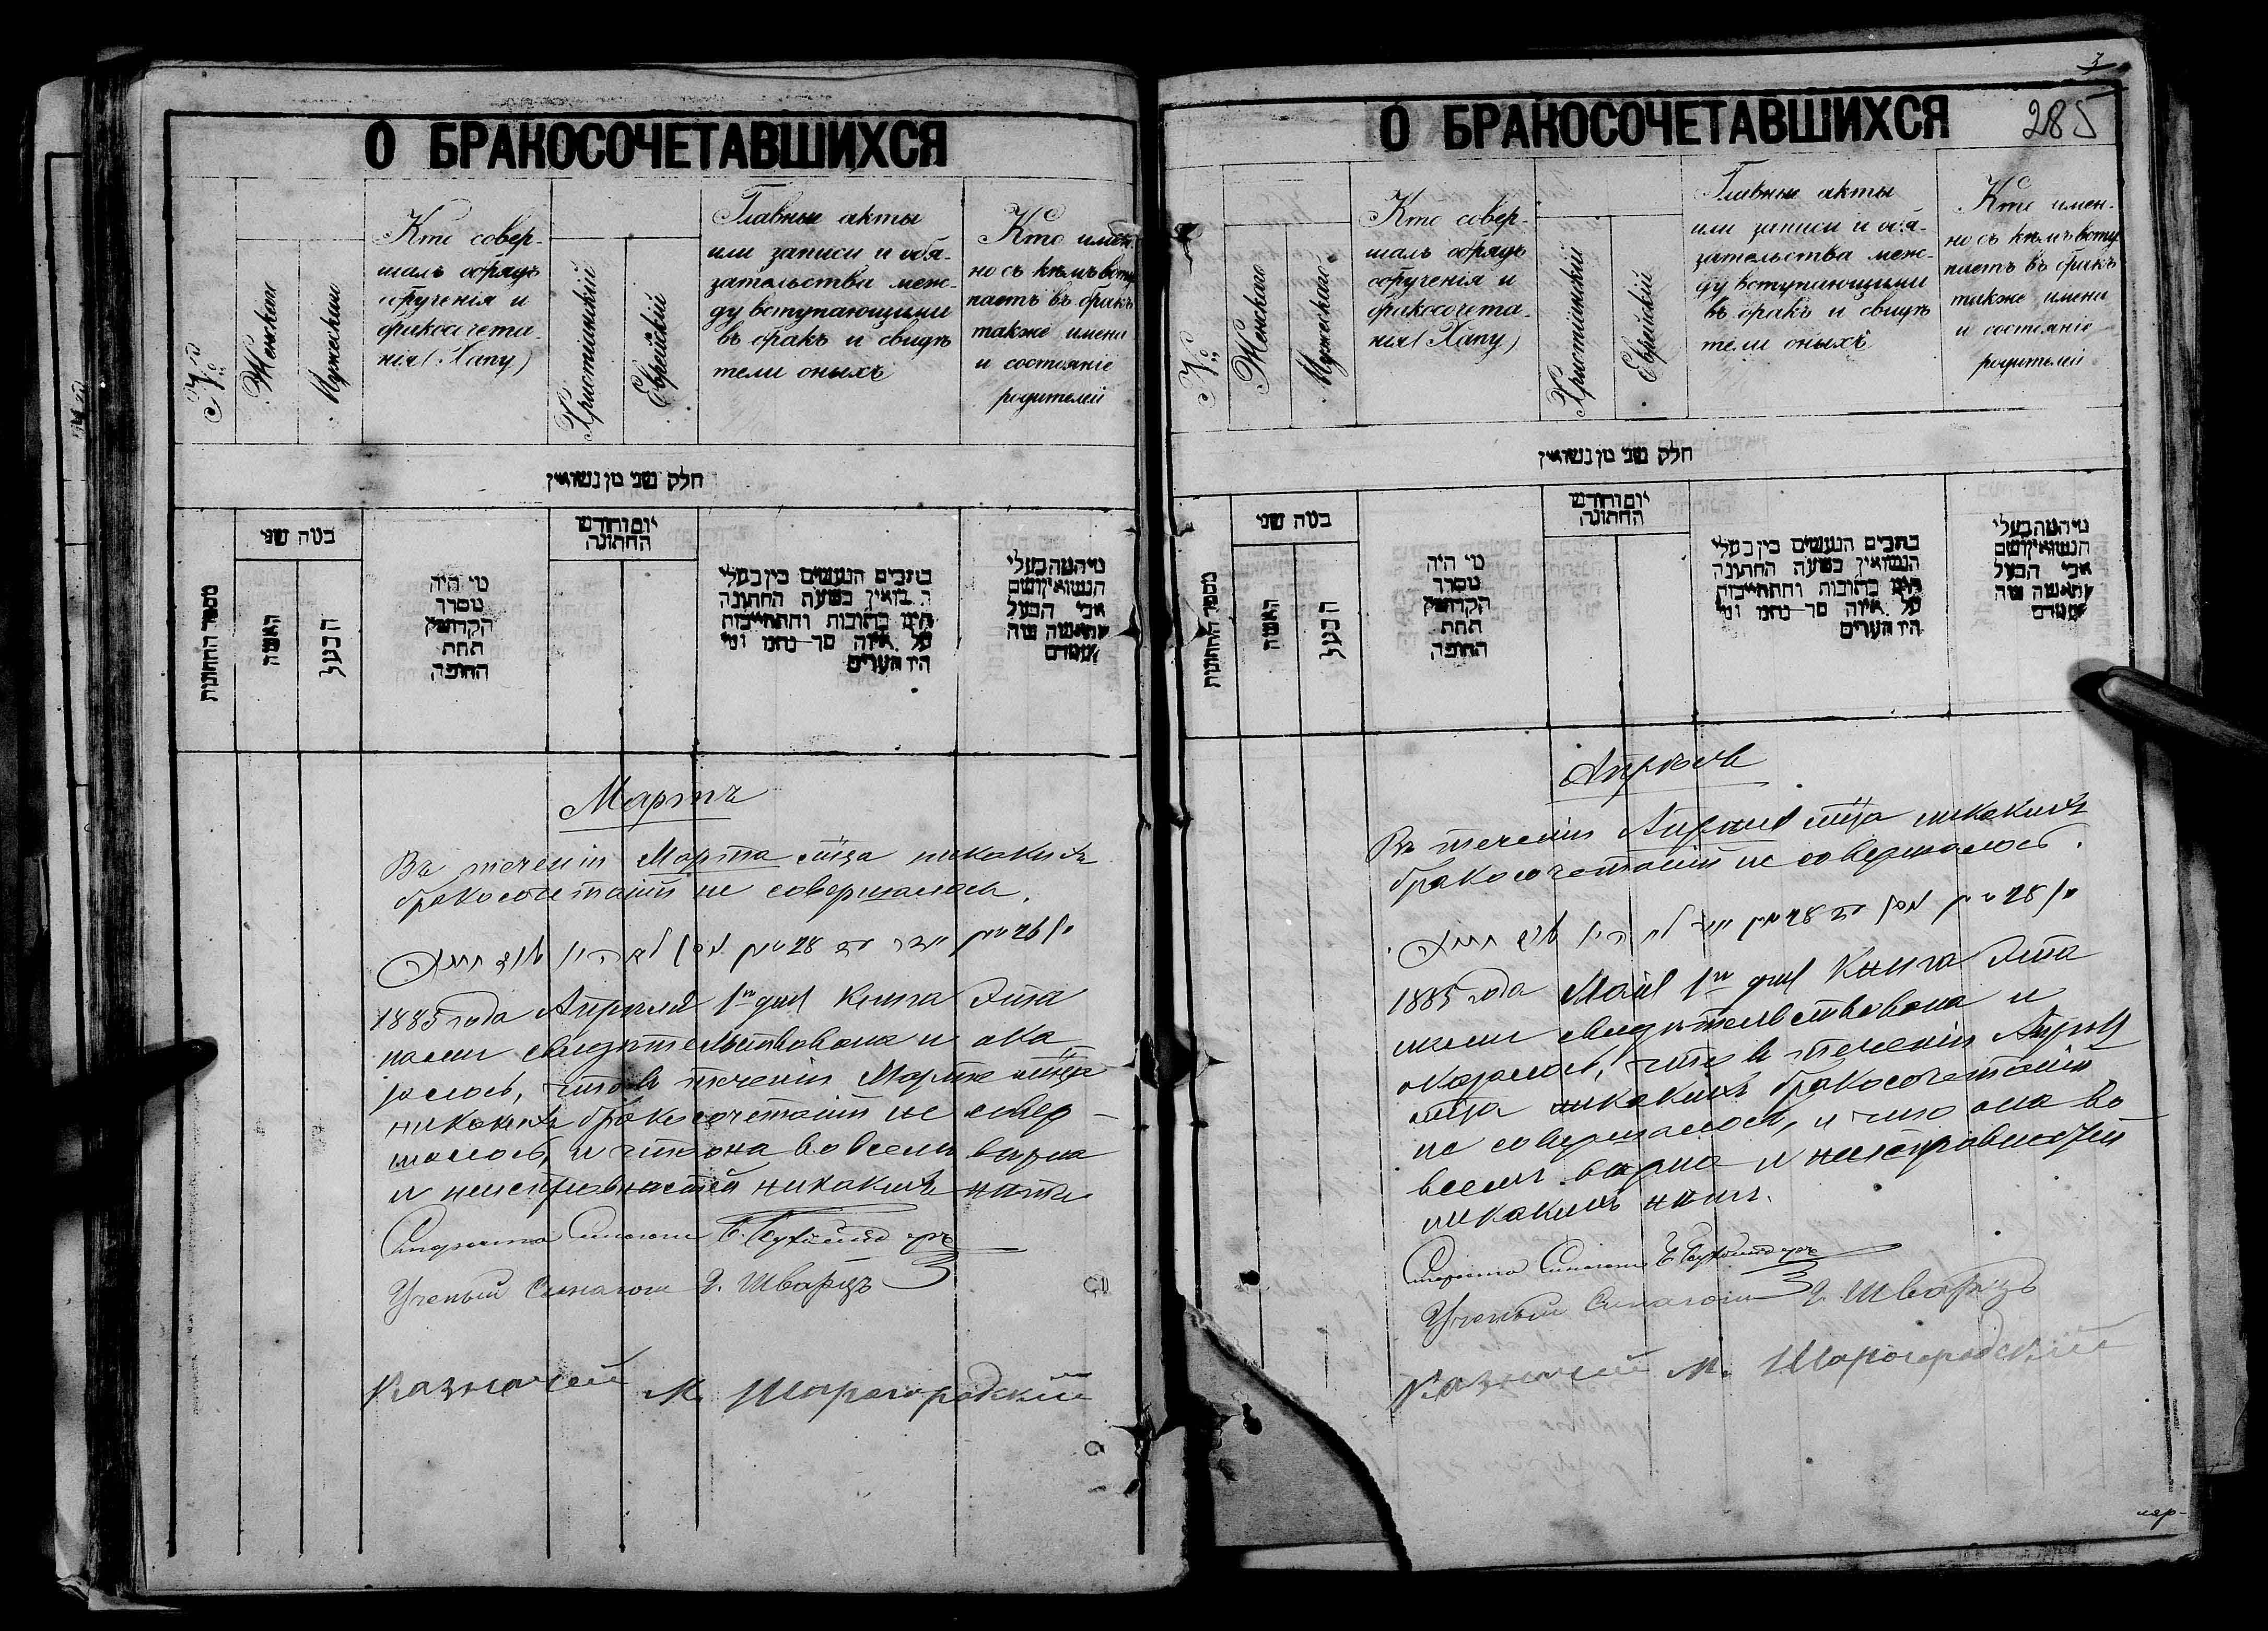 О БРАКОСОЧЕТАВШИХСЯ
№
Женскаго
Мужескаго
Кто совер-
шалъ обрядъ
обрученія и
бракосочета-
нія (Хапу)
Христіанскій
Еврейскій
Главные акты
или записи и обя-
зательства меж-
ду вступающими
въ бракъ и свидѣ
тели оныхъ
Кто имен
но съ кѣмъ всту
паетъ въ бракъ
также имена
и состояніе
родителей
חלק שני מן נשואין
מספר החתונות
כמה שני
האשה
הבעל
מי היה
מסדר
הקדושין
תחת
החופה
יום וחודש
החתונה
כתבים הנעשים בין בעלי
הנשואין בשעת החתונה
היינו כתובות והתחייבות
על איזה סך
היו העדים
מי המה בעלי
הנשואין ושם
אבי הבעל
והאשה
Мартъ
Въ теченіи Марта м-ца никакихъ
бракосочетаній не совершалось.
1885 года Апрѣля 1го дня Книга эта
нами свидѣтельствована и ока
залось, что въ теченіи Марта м-ца
никакихъ бракосочетаній не совер-
шалось, и что она во всемъ вѣрна
и неисправностей никакихъ нѣтъ
Староста Синагоги Б.
Ученый Синагоги Я. Шварцъ
Казначей М. Шарогородскій
3
285
О БРАКОСОЧЕТАВШИХСЯ
№
Женскаго
Мужескаго
Кто совер-
шалъ обрядъ
обрученія и
бракосочета-
нія (Хапу)
Христіанскій
Еврейскій
Главные акты
или записи и обя-
зательства меж-
ду вступающими
въ бракъ и свидѣ
тели оныхъ
Кто имен-
но съ кѣмъ всту
паетъ въ бракъ
также имена
и состояніе
родителей
חלק שני מן נשואין
מספר החתונות
כמה שני
האשה
הבעל
מי היה
מסדר
הקדושין
תחת
החופה
יום וחודש
החתונה
כתבים הנעשים בין בעלי
הנשואין בשעת החתונה
היינו כתובות והתחייבות
על איזה סך
היו העדים
מי המה בעלי
הנשואין ושם
אבי הבעל
והאשה
Апрѣль
Въ теченіи Апрѣля м-ца никакихъ
бракосочетаній не совершалось.
1885 года Маія 1го дня Книга эта
нами свидѣтельствована и
оказалось, что въ теченіи Апрѣля
м-ца никакихъ бракосочетаній
не совершалось, и что она во
всемъ вѣрна и неисправностей
никакихъ нѣтъ.
Староста Синагоги Б.
Ученый Синагоги Я. Шварцъ
Казначей М. Шарогородскій